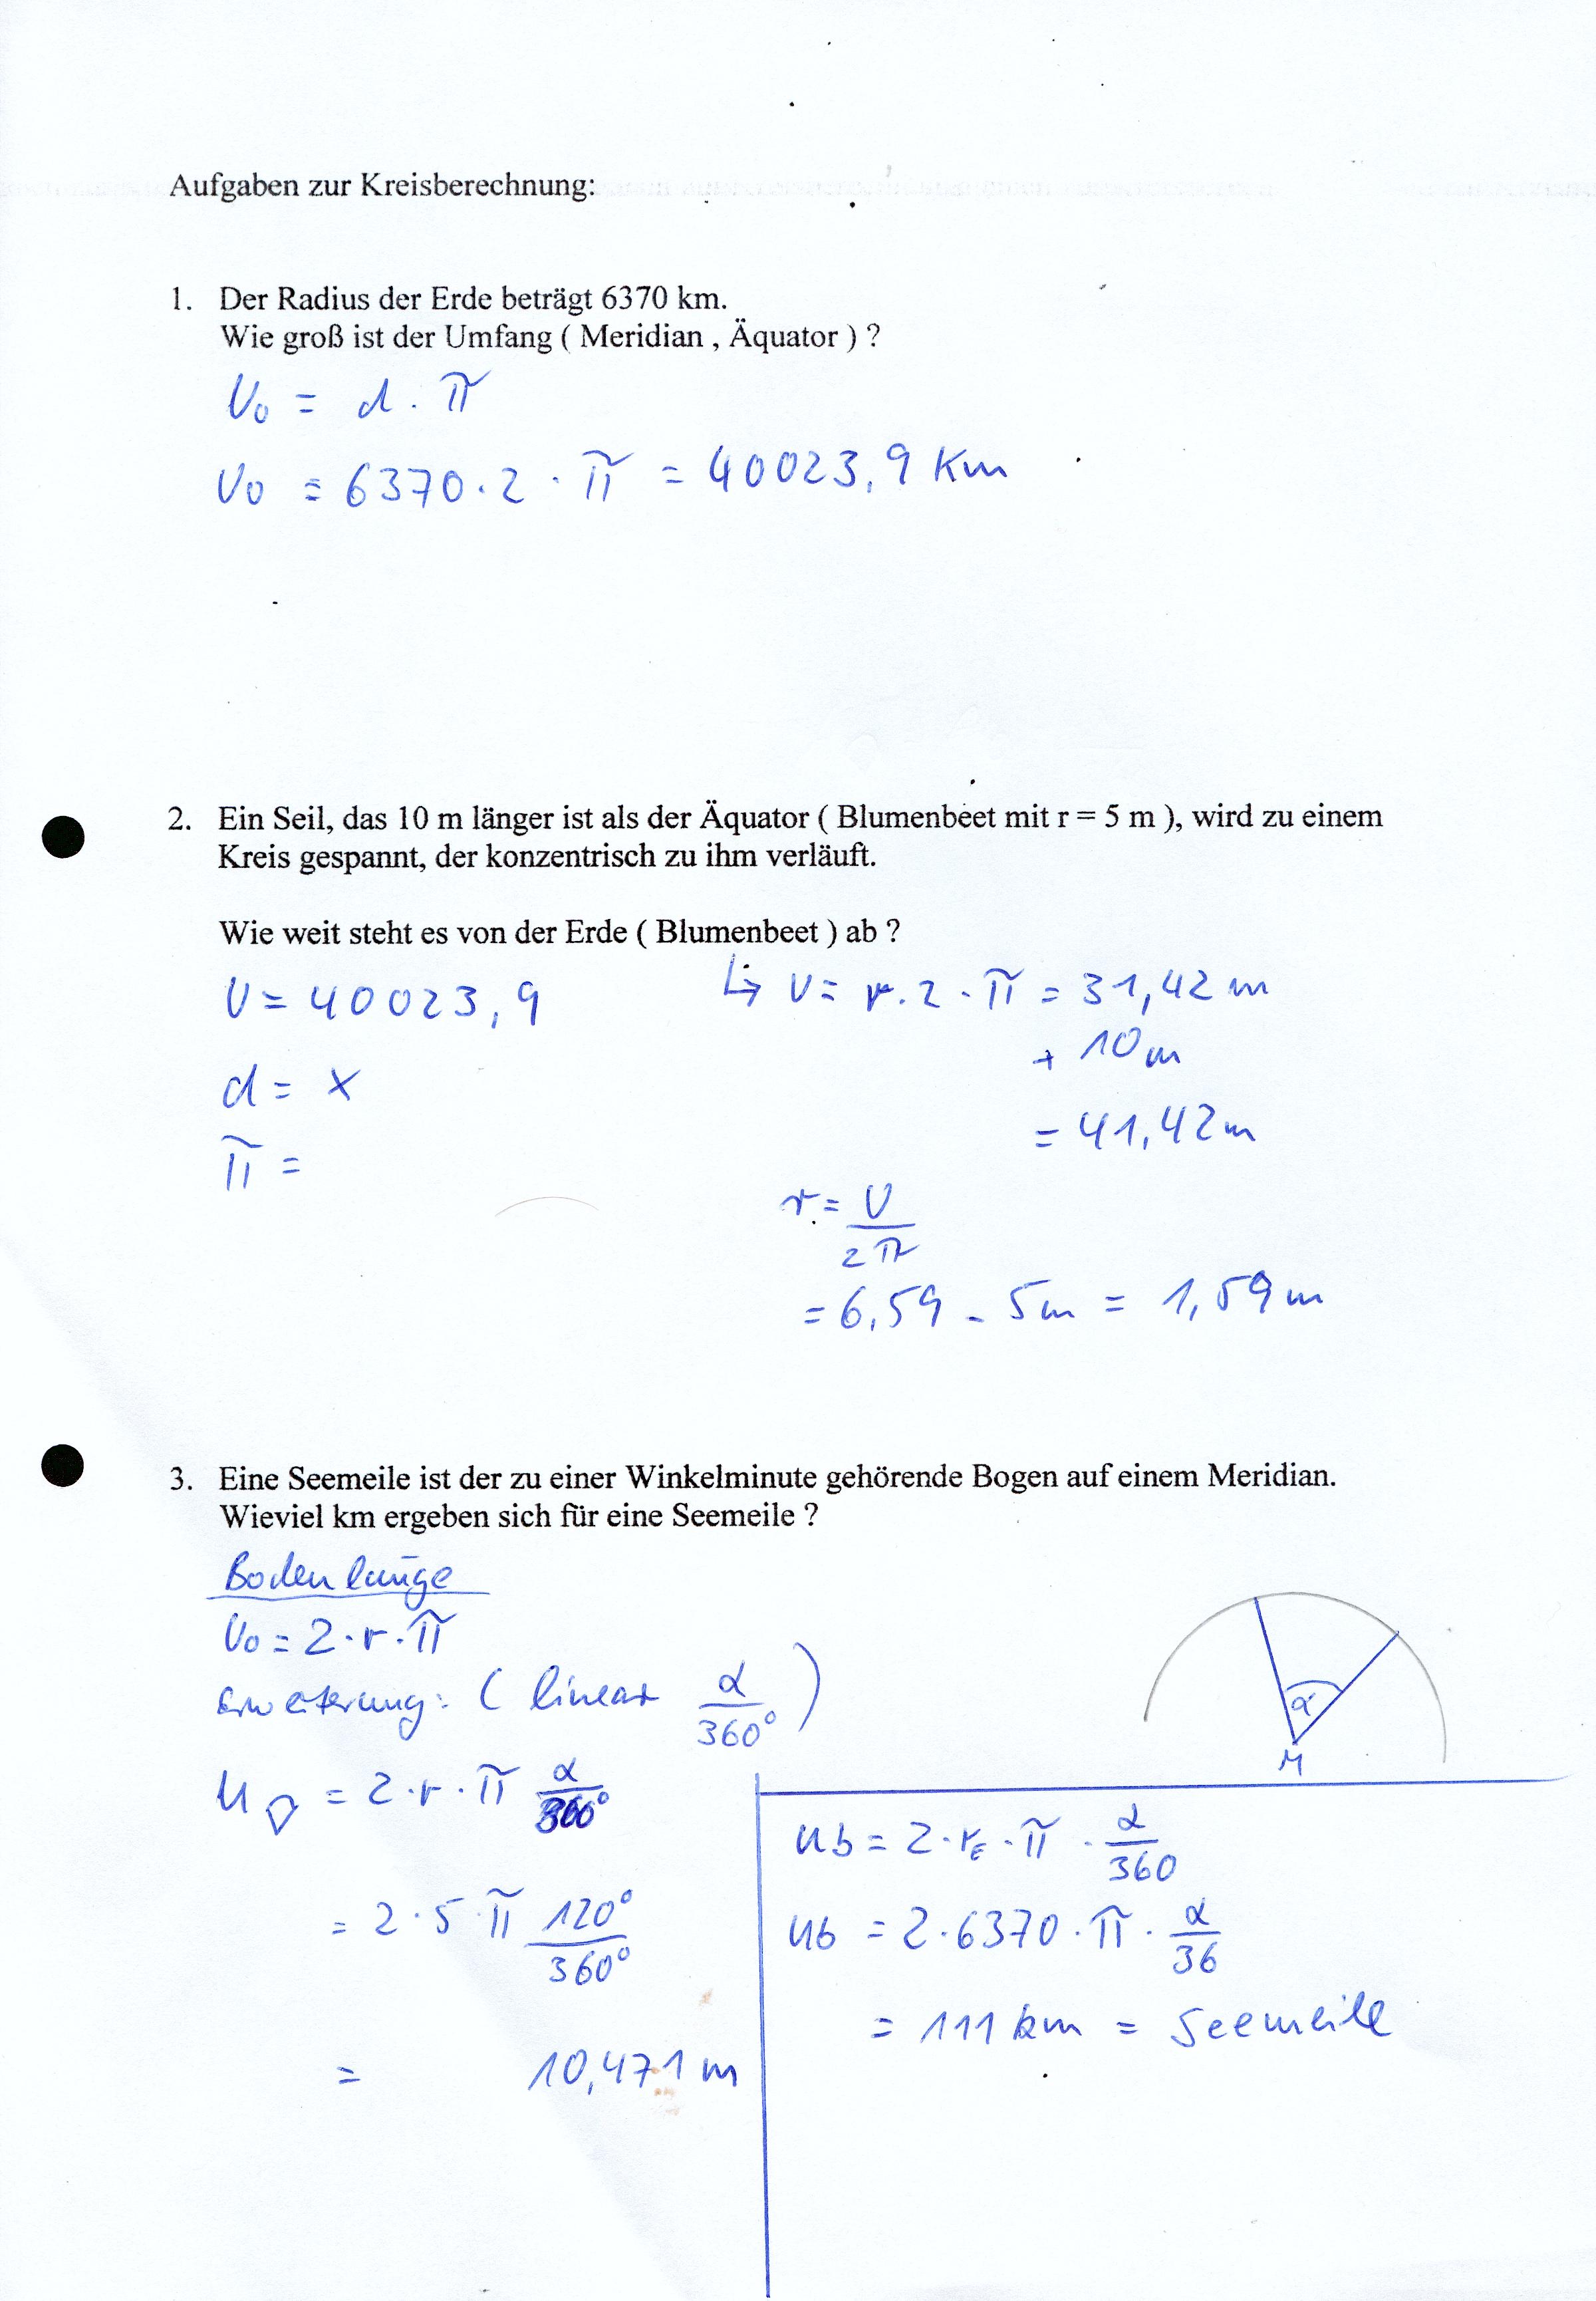 Aufgaben zur Kreisberechnung:
1. Der Radius der Erde beträgt 6370 km.
Wie groß ist der Umfang ( Meridian , Äquator ) ?
U₀ = d · π
U₀ = 6370 · 2 · π = 40023,9 Km
2. Ein Seil, das 10 m länger ist als der Äquator ( Blumenbeet mit r = 5 m ), wird zu einem
Kreis gespannt, der konzentrisch zu ihm verläuft.
Wie weit steht es von der Erde ( Blumenbeet ) ab ?
U = 40023,9
d = x
π =
↳ U = r · 2 · π = 31,42 m
+ 10 m
= 41,42 m
r = U / 2π
= 6,59 - 5m = 1,59 m
3. Eine Seemeile ist der zu einer Winkelminute gehörende Bogen auf einem Meridian.
Wieviel km ergeben sich für eine Seemeile ?
Bodenlänge
U₀ = 2 · r · π
Erweiterung: ( linear α / 360° )
α
M
u = 2 · r · π α / 360°
= 2 · 5 · π 120° / 360°
= 10,471 m
ub = 2 · r_E · π · α / 360
ub = 2 · 6370 · π · α / 36
= 111 km = Seemeile